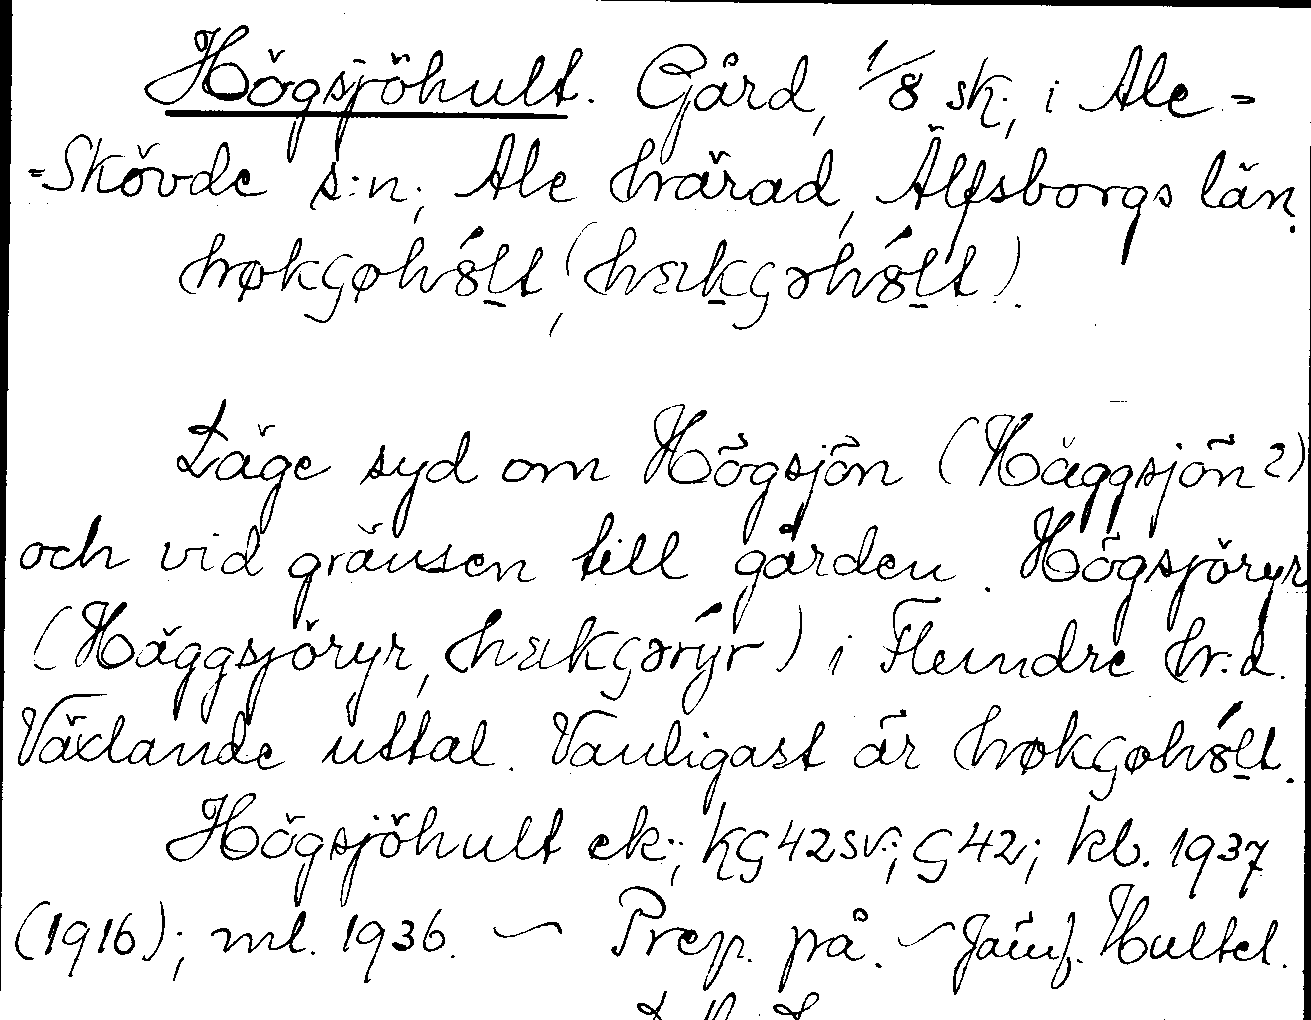 Högsjöhult. Gård, 1/8 sk., i Ale=
=Skövde s:n, Ale härad, Älfsborgs län.
Läge syd om Högsjön (Häggsjön?)
och vid gränsen till gården Högsjöryr
(Häggsjöryr, ) i Flundre hr.d.
Växlande uttal. Vanligast är
Högsjöhult ek.; KG42sv.; G42; kb. 1937
(1916); ml. 1936. — Prep. på. — Jämf. Hultet.